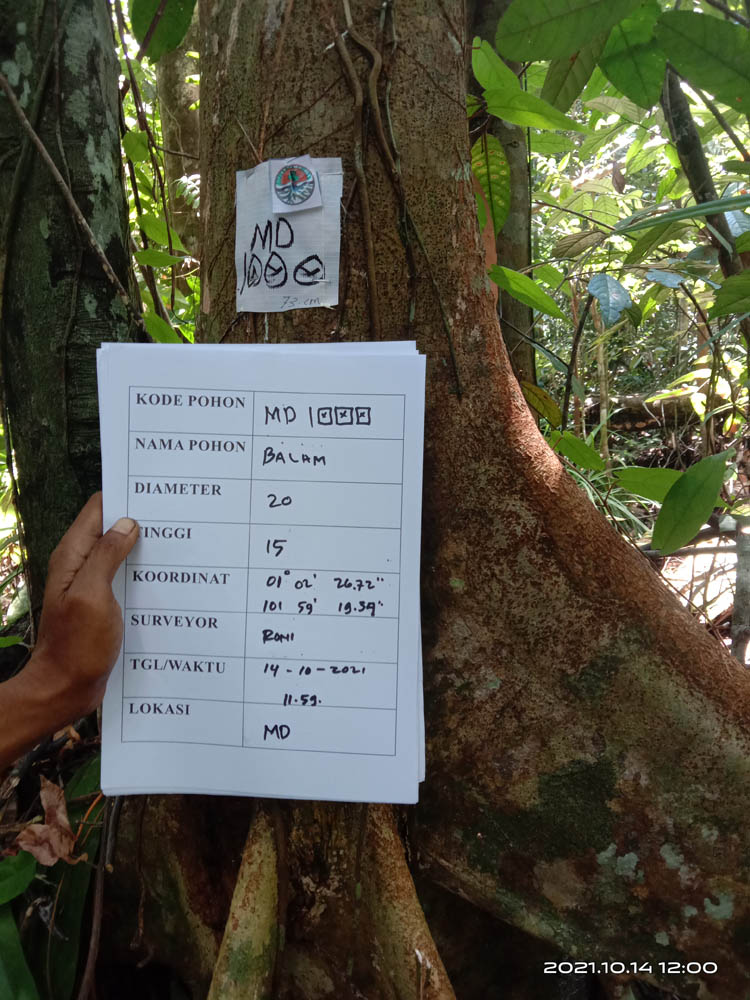 MD
1000
73.cm
KODE POHON MD 1000
NAMA POHON BALAM
DIAMETER 20
TINGGI 15
KOORDINAT 01° 02' 26.72"
101 59' 19.39"
SURVEYOR RONI
TGL/WAKTU 14-10-2021
11.59.
LOKASI MD
2021.10.14 12:00